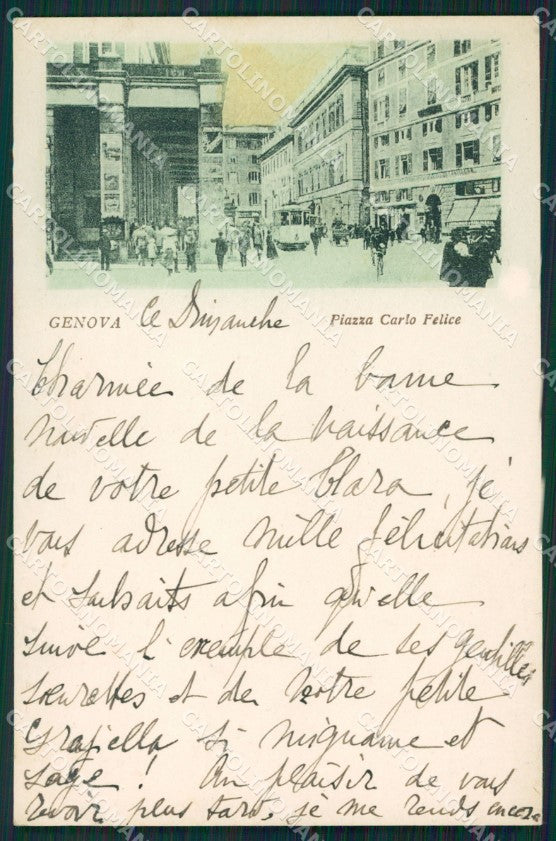 GENOVA Ce Dimanche Piazza Carlo Felice
Charmée de la bonne
nouvelle de la naissance
de votre petite Clara, je
vous adresse mille félicitations
et souhaits afin qu'elle
suive l'exemple de ses gentilles
soeurettes et de votre petite
si mignonne et
sage! Au plaisir de vous
revoir plus tard, je me rends encore
CARTOLINOMANIA